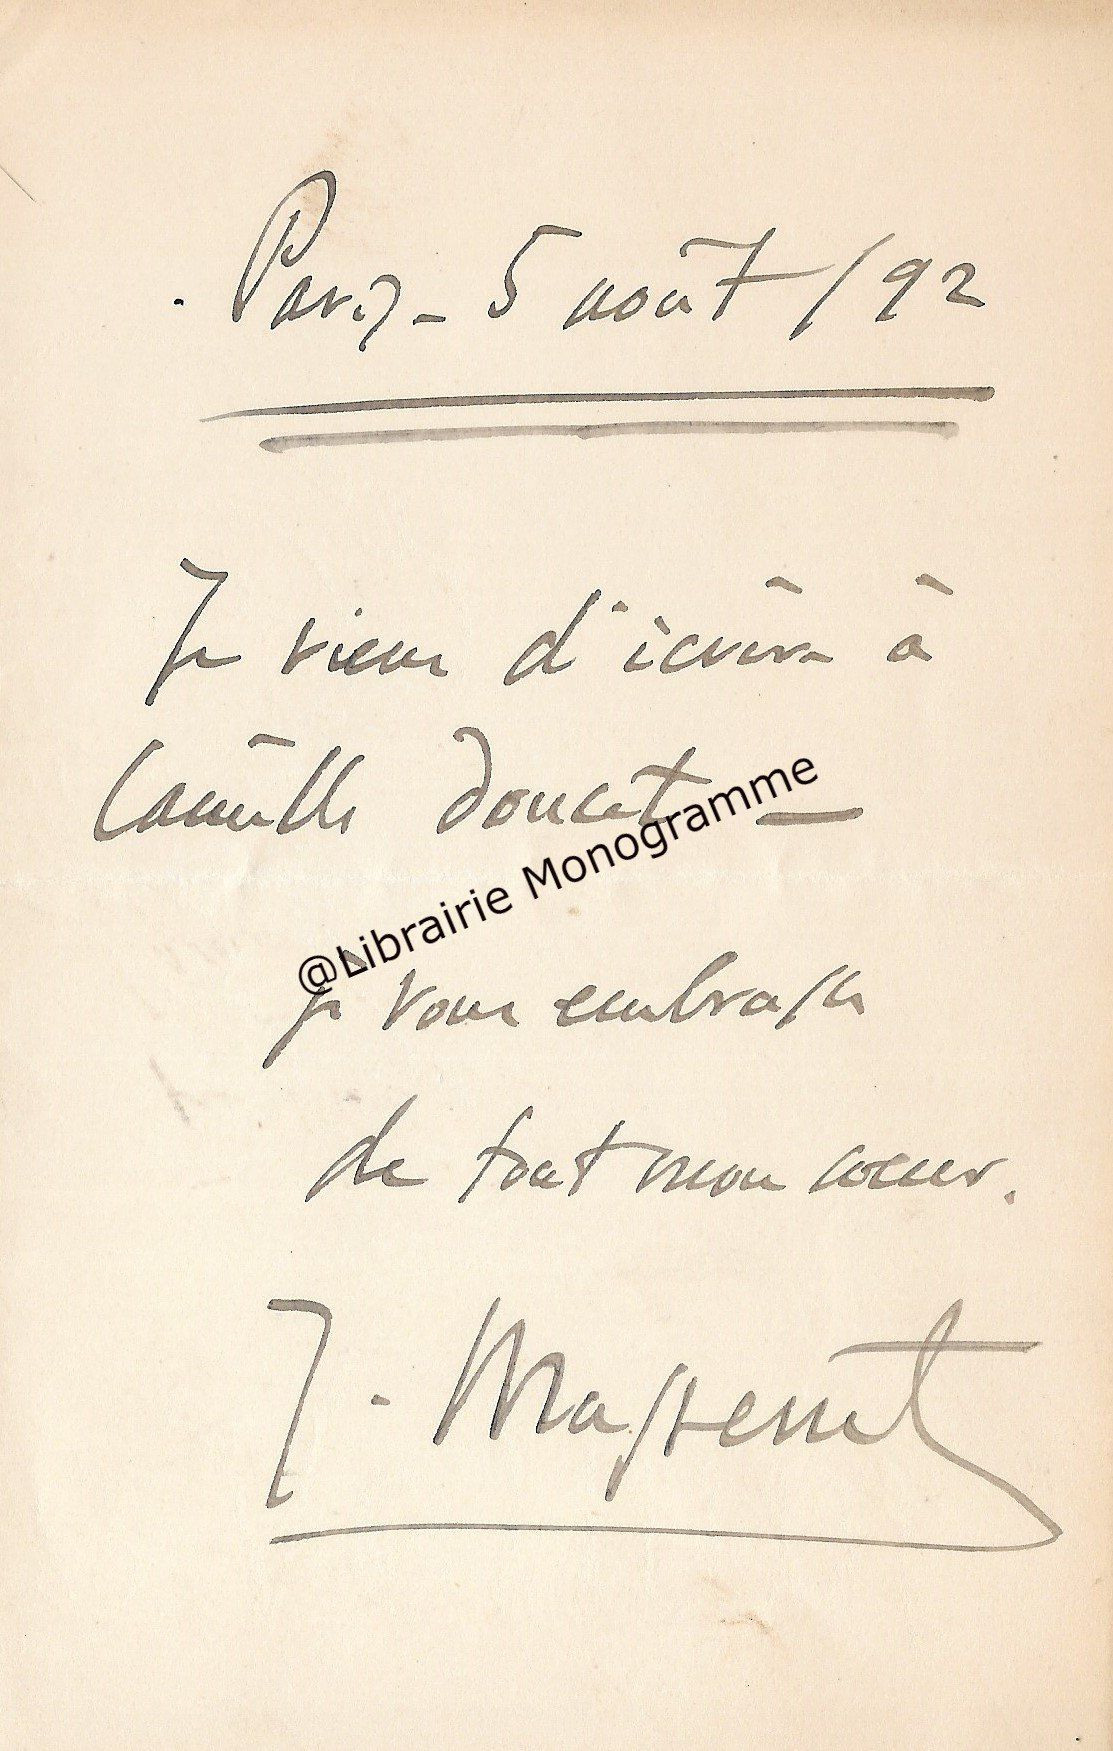 Paris - 5 août / 92
Je viens d'écrire à
Camille Doucet —
@Librairie Monogramme
je vous embrasse
de tout mon cœur.
J. Massenet